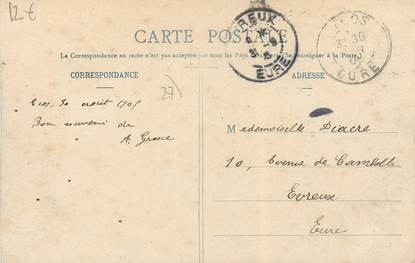 12 €
CARTE POSTALE
La Correspondance au recto n'est pas acceptée par tous les Pays à la Poste.)
CORRESPONDANCE
ADRESSE
EVREUX
EURE
EURE
27)
30 août 1905
Bon souvenir de
A.
Mademoiselle Diacre
10, Avenue de Cambolle
Evreux
Eure